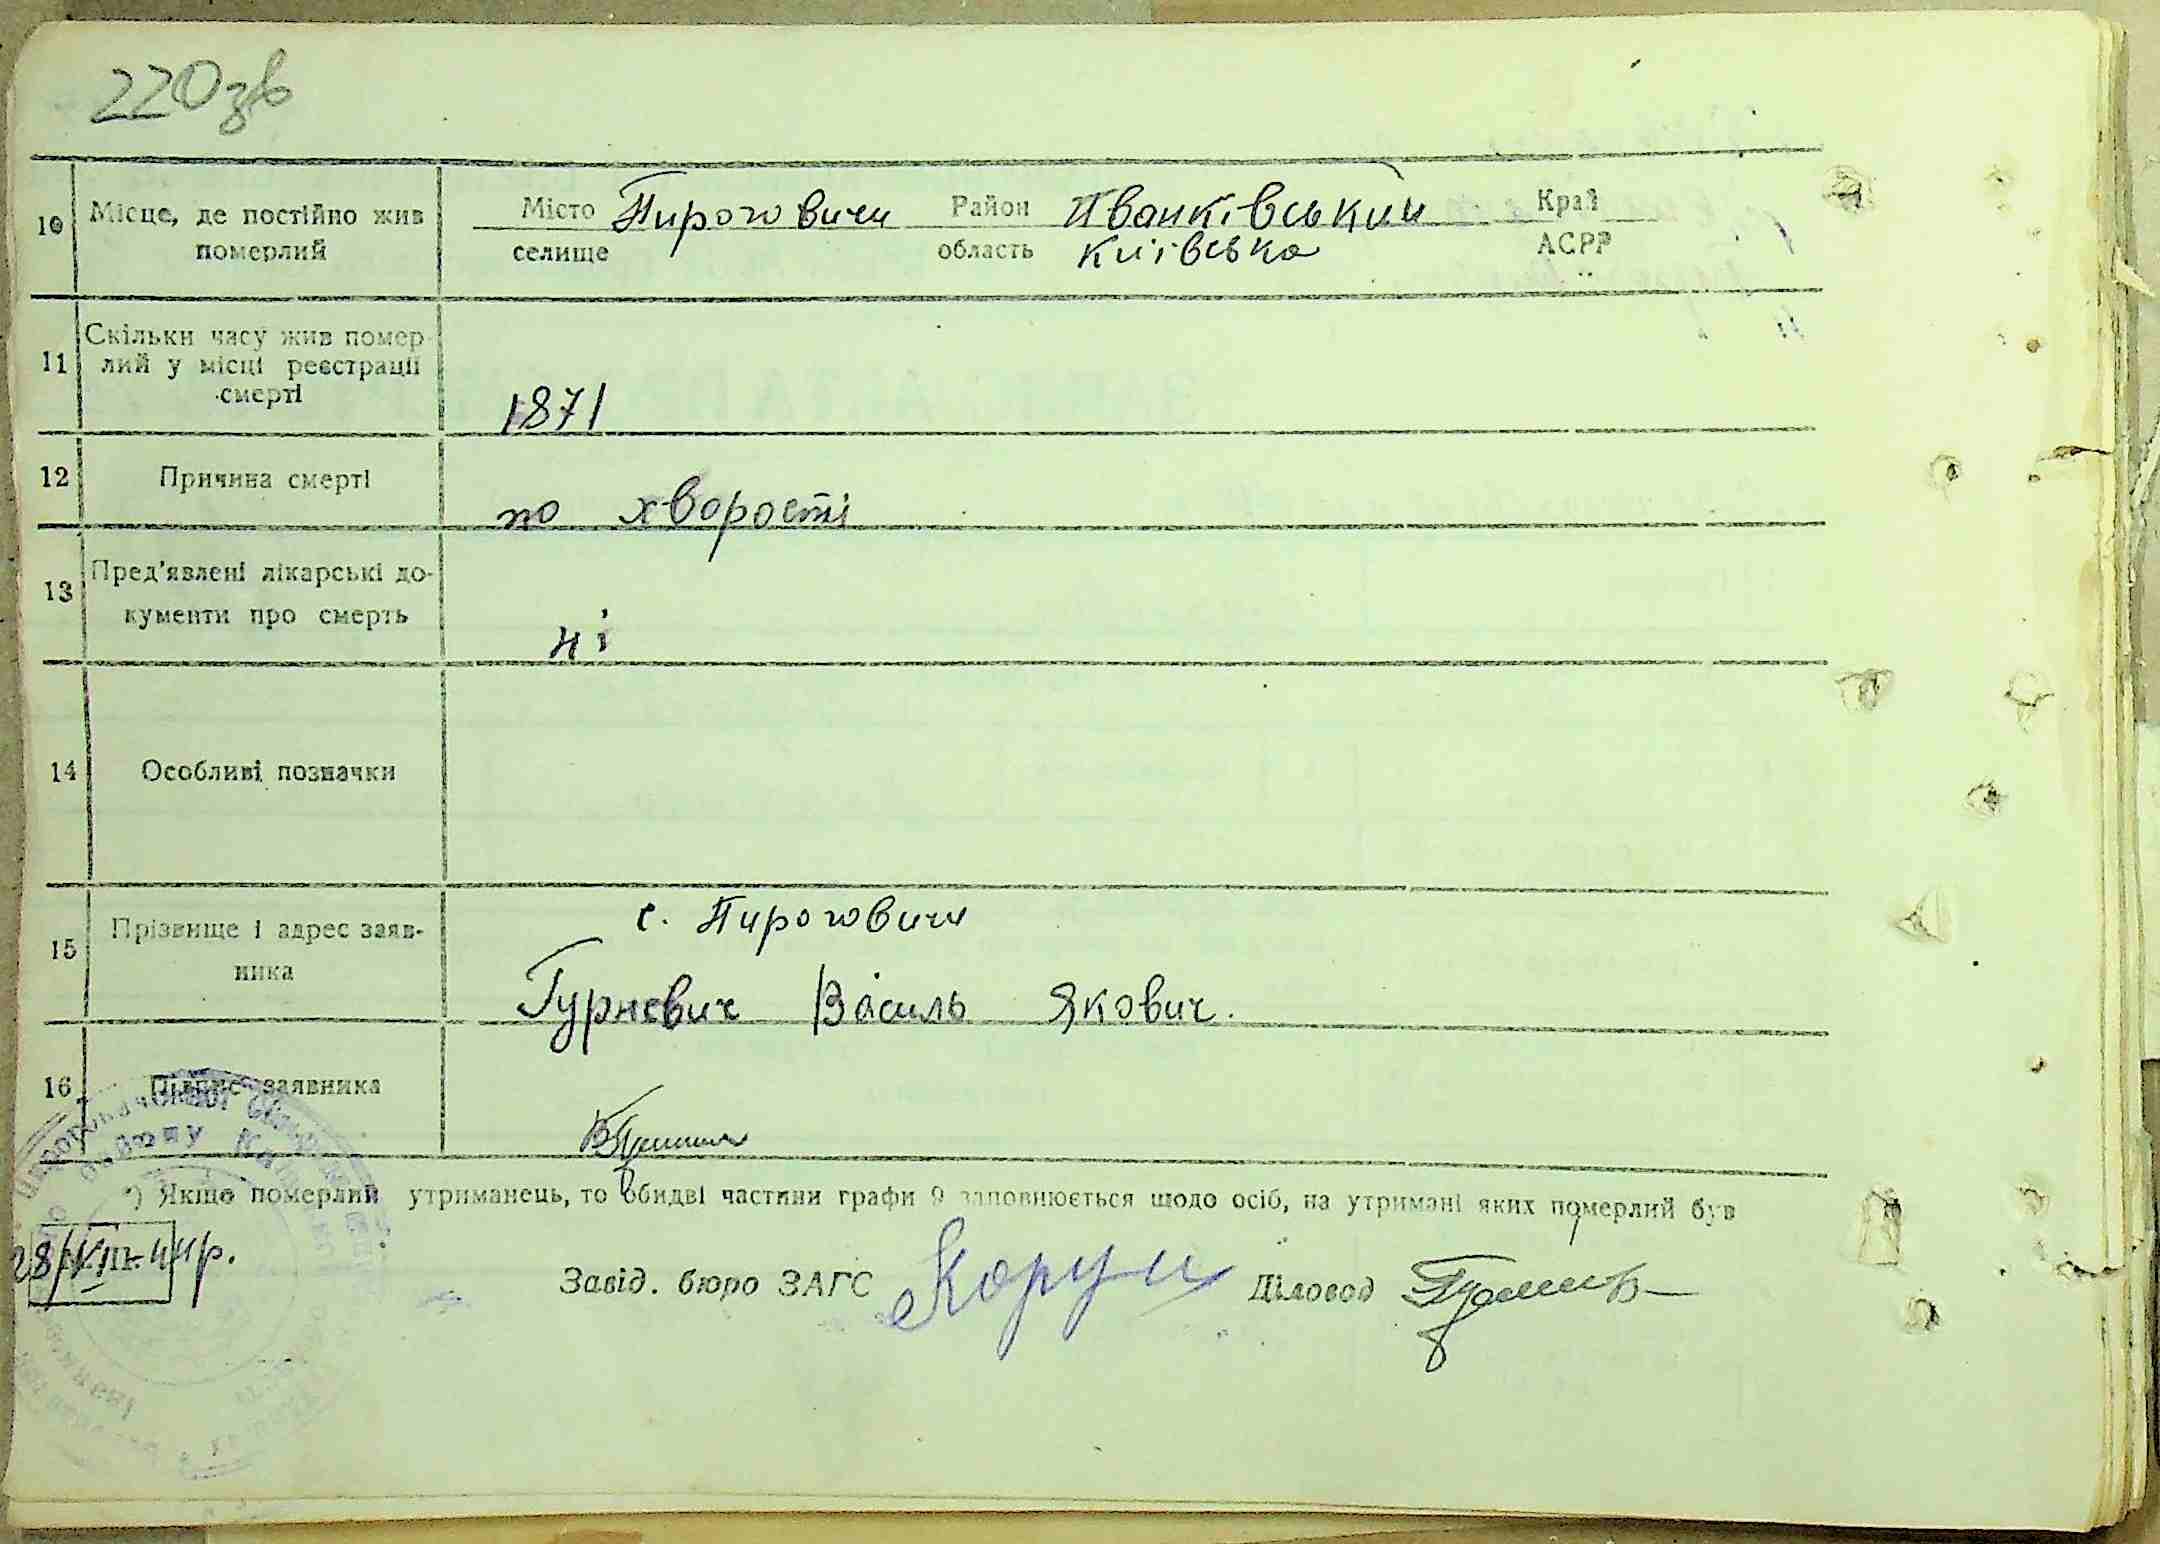 220зв
10 Місце, де постійно жив померлий
Місто Пироговичи Район Іванківський Край
селище область Київська АСРР
11 Скільки часу жив помер-
лий у місці реєстрації
смерті
1871
12 Причина смерті
по хворості
13 Пред'явлені лікарські до-
кументи про смерть
ні
14 Особливі позначки
с. Пироговичи
15 Прізвище і адрес заяв-
ника
Гурневич Василь Якович.
16 Підпис заявника
*) Якщо померлий утриманець, то обидві частини графи 9 заповнюється щодо осіб, на утримані яких померлий був
28/VII-44р.
Завід. бюро ЗАГС Діловод